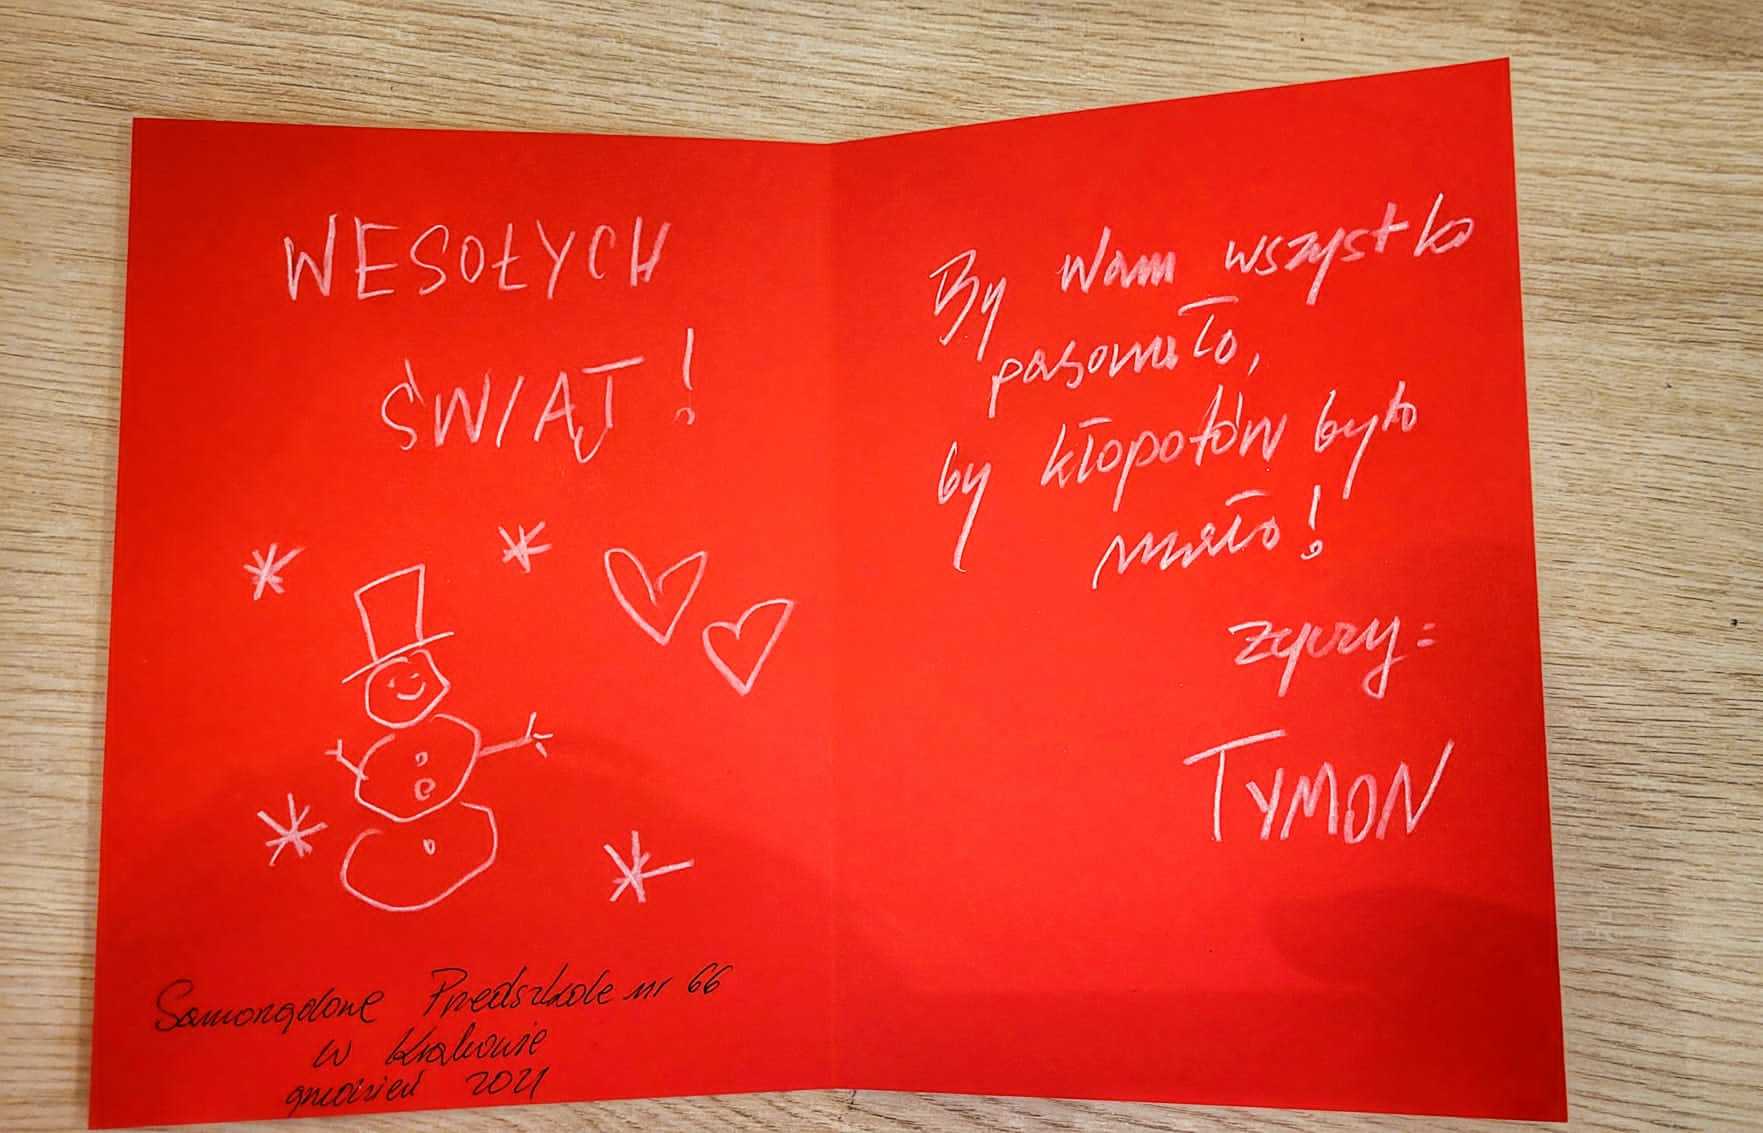 WESOŁYCH
ŚWIĄT!
Samorządowe Przedszkole nr 66
w Krakowie
grudzień 2021
By Wam wszystko
pasowało,
by kłopotów było
mało!
życzy:
TYMON